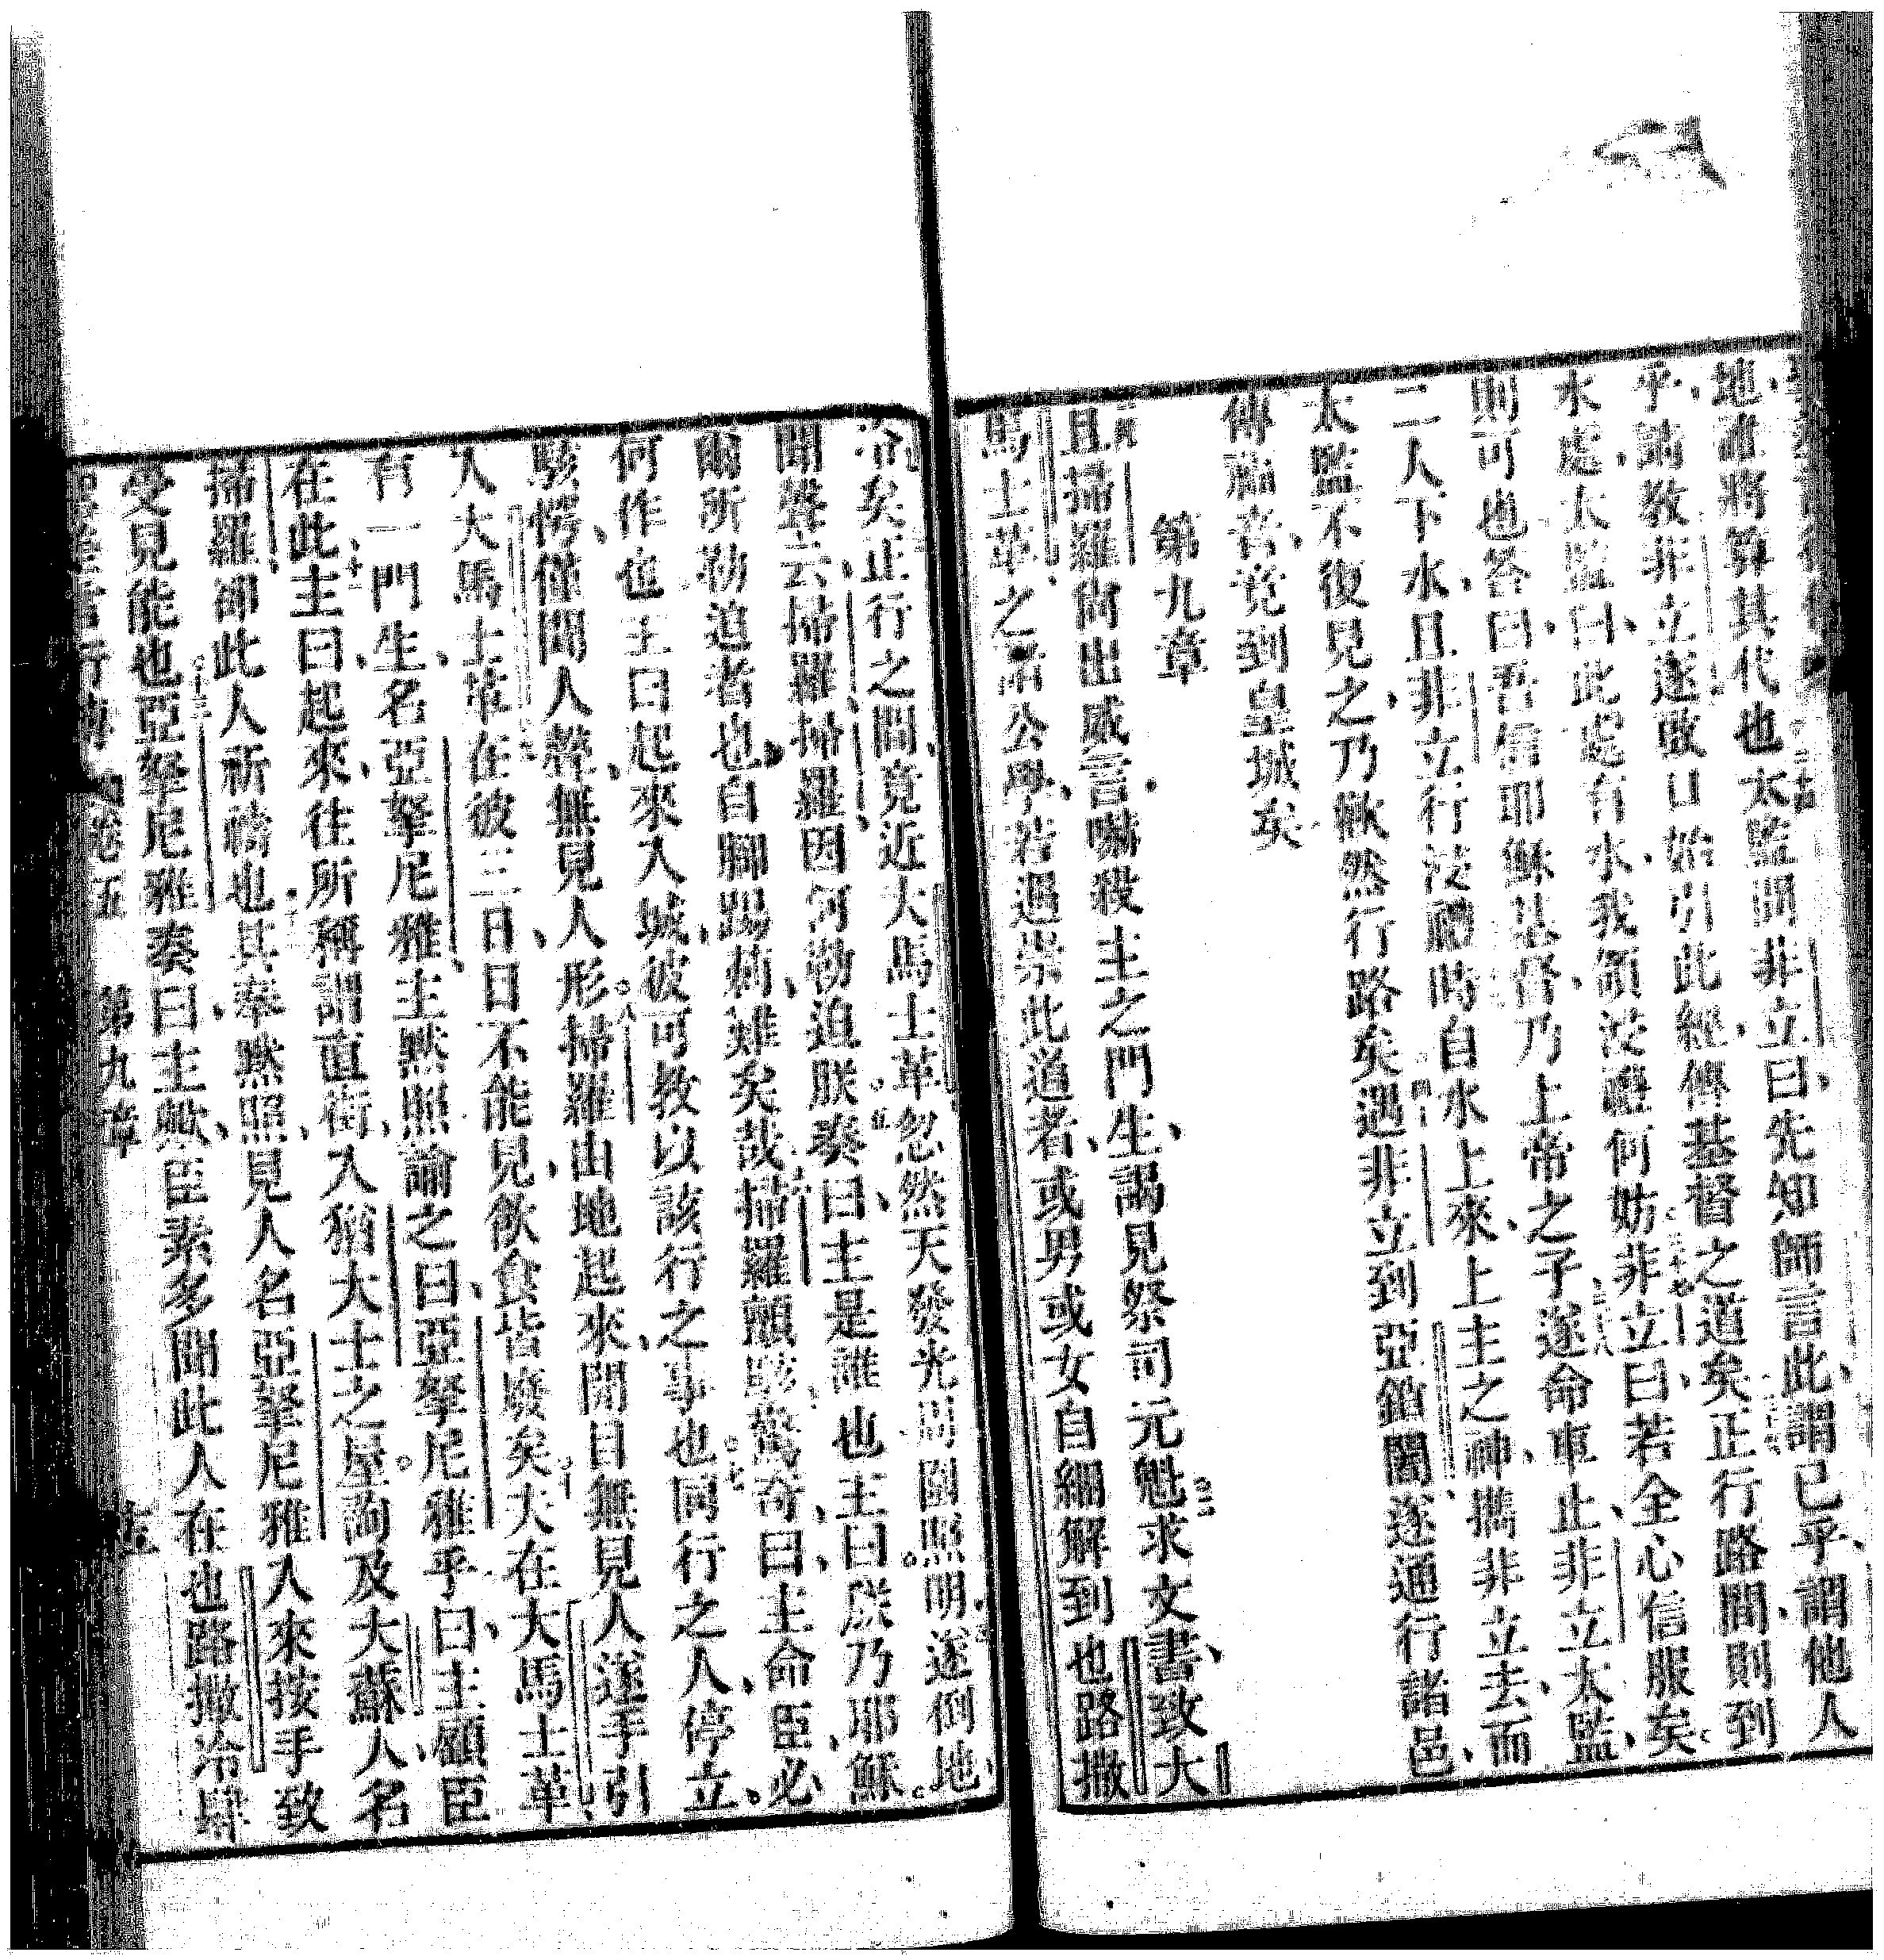 地、誰將算其代也太監問非立曰、先知師言此、謂已乎、謂他人
乎、論教非立遂啟口始引此經、傳基督之道矣正行路間、則到
水處、太監曰、此處有水、我領浸禮何妨非立曰、若全心信服矣
則可也答曰、吾信耶穌基督、乃上帝之子遂命車止、非立太監、
二人下水、且非立行浸禮時自水上來、上主之神、攜非立去、而
太監不復見之、乃歡然行路矣遇非立到亞鎖闍、遂通行諸邑、
傳福音、竟到皇城矣
第九章
且掃羅尙出威言嚇殺主之門生、謁見祭司元魁求文書、致大
馬士革之諸公學、若遇崇此道者、或男或女自綑解到也路撒
冷矣正行之間、竟近大馬士革忽然天發光周圍照明遂倒地、
聞聲云、掃羅、掃羅、因何勒迫朕奏曰、主是誰也主曰朕乃耶穌。
爾所勒迫者也、自腳踢刺、難矣哉掃羅顫駭驚奇曰、主命臣、必
何作也主曰起來入城、彼可敎以該行之事也同行之人、停立。
駭愕、僅聞人聲、無見人形。掃羅由地起來、開目無見人遂手引
入大馬士革在彼三日、日不能見、飲食皆廢矣夫在大馬士革
有一門生、名亞拏尼雅、主默照諭之曰、亞拏尼雅乎曰、主顧臣
在此、主曰、起來、往所稱謂直街、入猶大士之屋詢及大蘇人、名
掃羅、卻此人祈禱也其奉默照、見人名亞拏尼雅入來按手致
受見能也亞拏尼雅奏曰、主歟、臣素多聞此人在也路撒冷肆
行傳 卷五 第九章